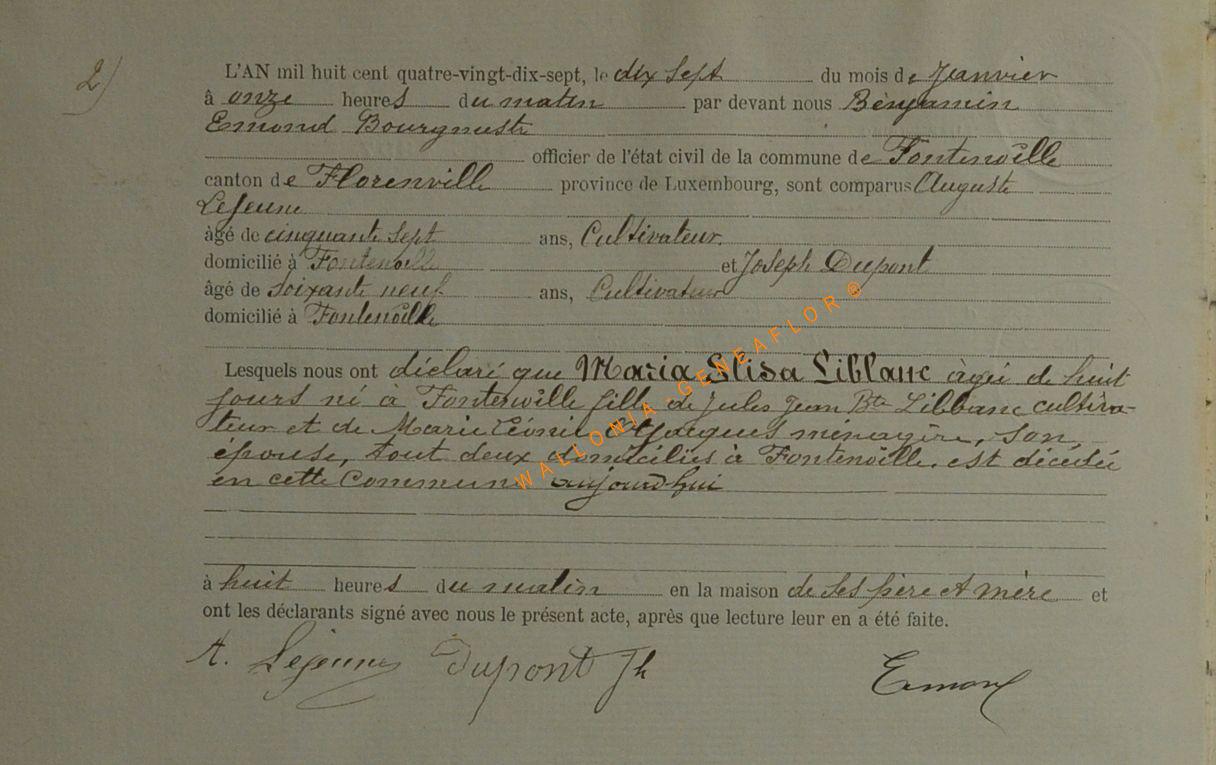 2)
L'AN mil huit cent quatre-vingt-dix-sept, le dix sept du mois de Janvier
à onze heures du matin par devant nous Benjamin
Emond Bourgmestre
officier de l'état civil de la commune de Fontenoille
canton de Florenville province de Luxembourg, sont comparus Auguste
Lejeune
âgé de cinquante sept ans, Cultivateur.
domicilié à Fontenoille et Joseph Dupont
âgé de soixante neuf ans, Cultivateur
domicilié à Fontenoille
Lesquels nous ont déclaré que Maria Elisa Liblanc âgée de huit
jours né à Fontenoille fille de Jules Jean Bte Liblanc cultiva-
teur et de Marie Léonie Jacques ménagère, son
épouse, tout deux domiciliés à Fontenoille. est décédée
en cette Commune aujourd'hui
à huit heures du matin en la maison de ses père et mère et
ont les déclarants signé avec nous le présent acte, après que lecture leur en a été faite.
A. Lejeune Dupont Jh Emond
WALLONIA-GENEAFLOR®